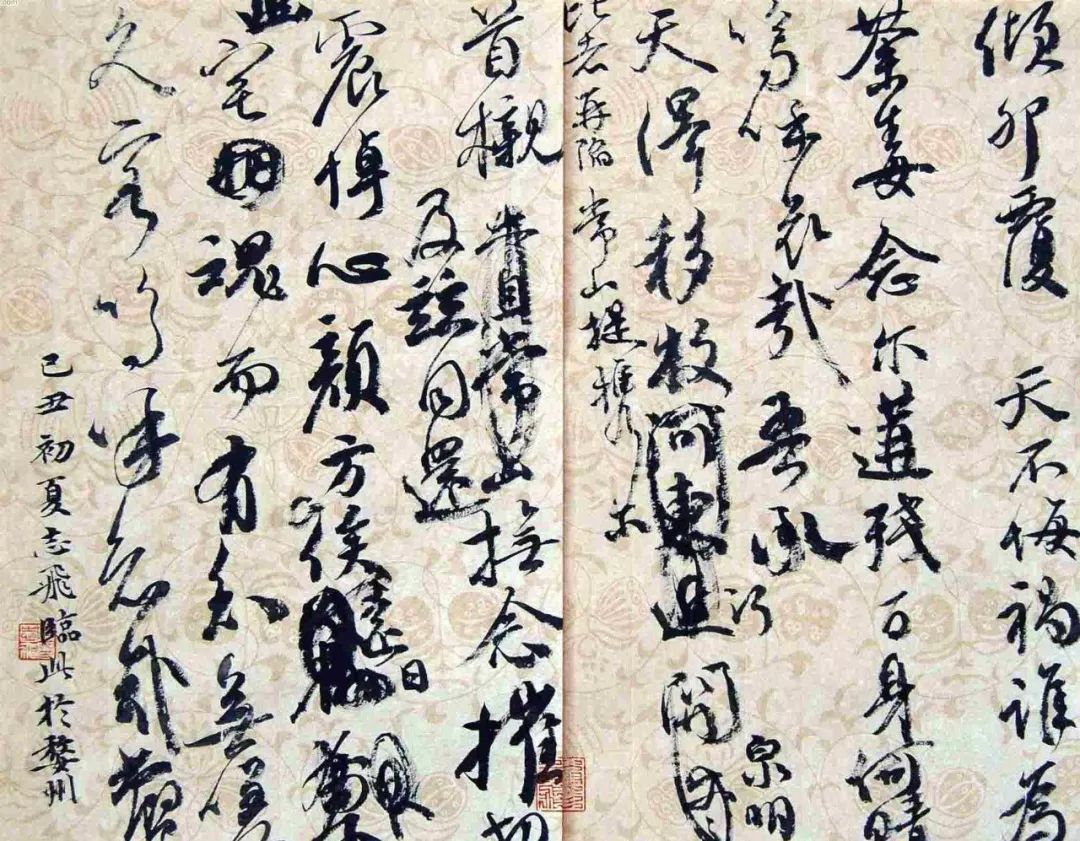 傾卵覆 天不悔禍誰為
荼毒念爾遘殘百身何贖
嗚呼哀哉吾承
泉明
天澤移牧河東近
比者再陷常山提攜
首櫬 常山撫念摧切
及茲同還
震悼心顏方俟遠日
此宅 魂而有知無嗟
久客嗚呼哀哉尚
己丑初夏志飛臨此於婺州